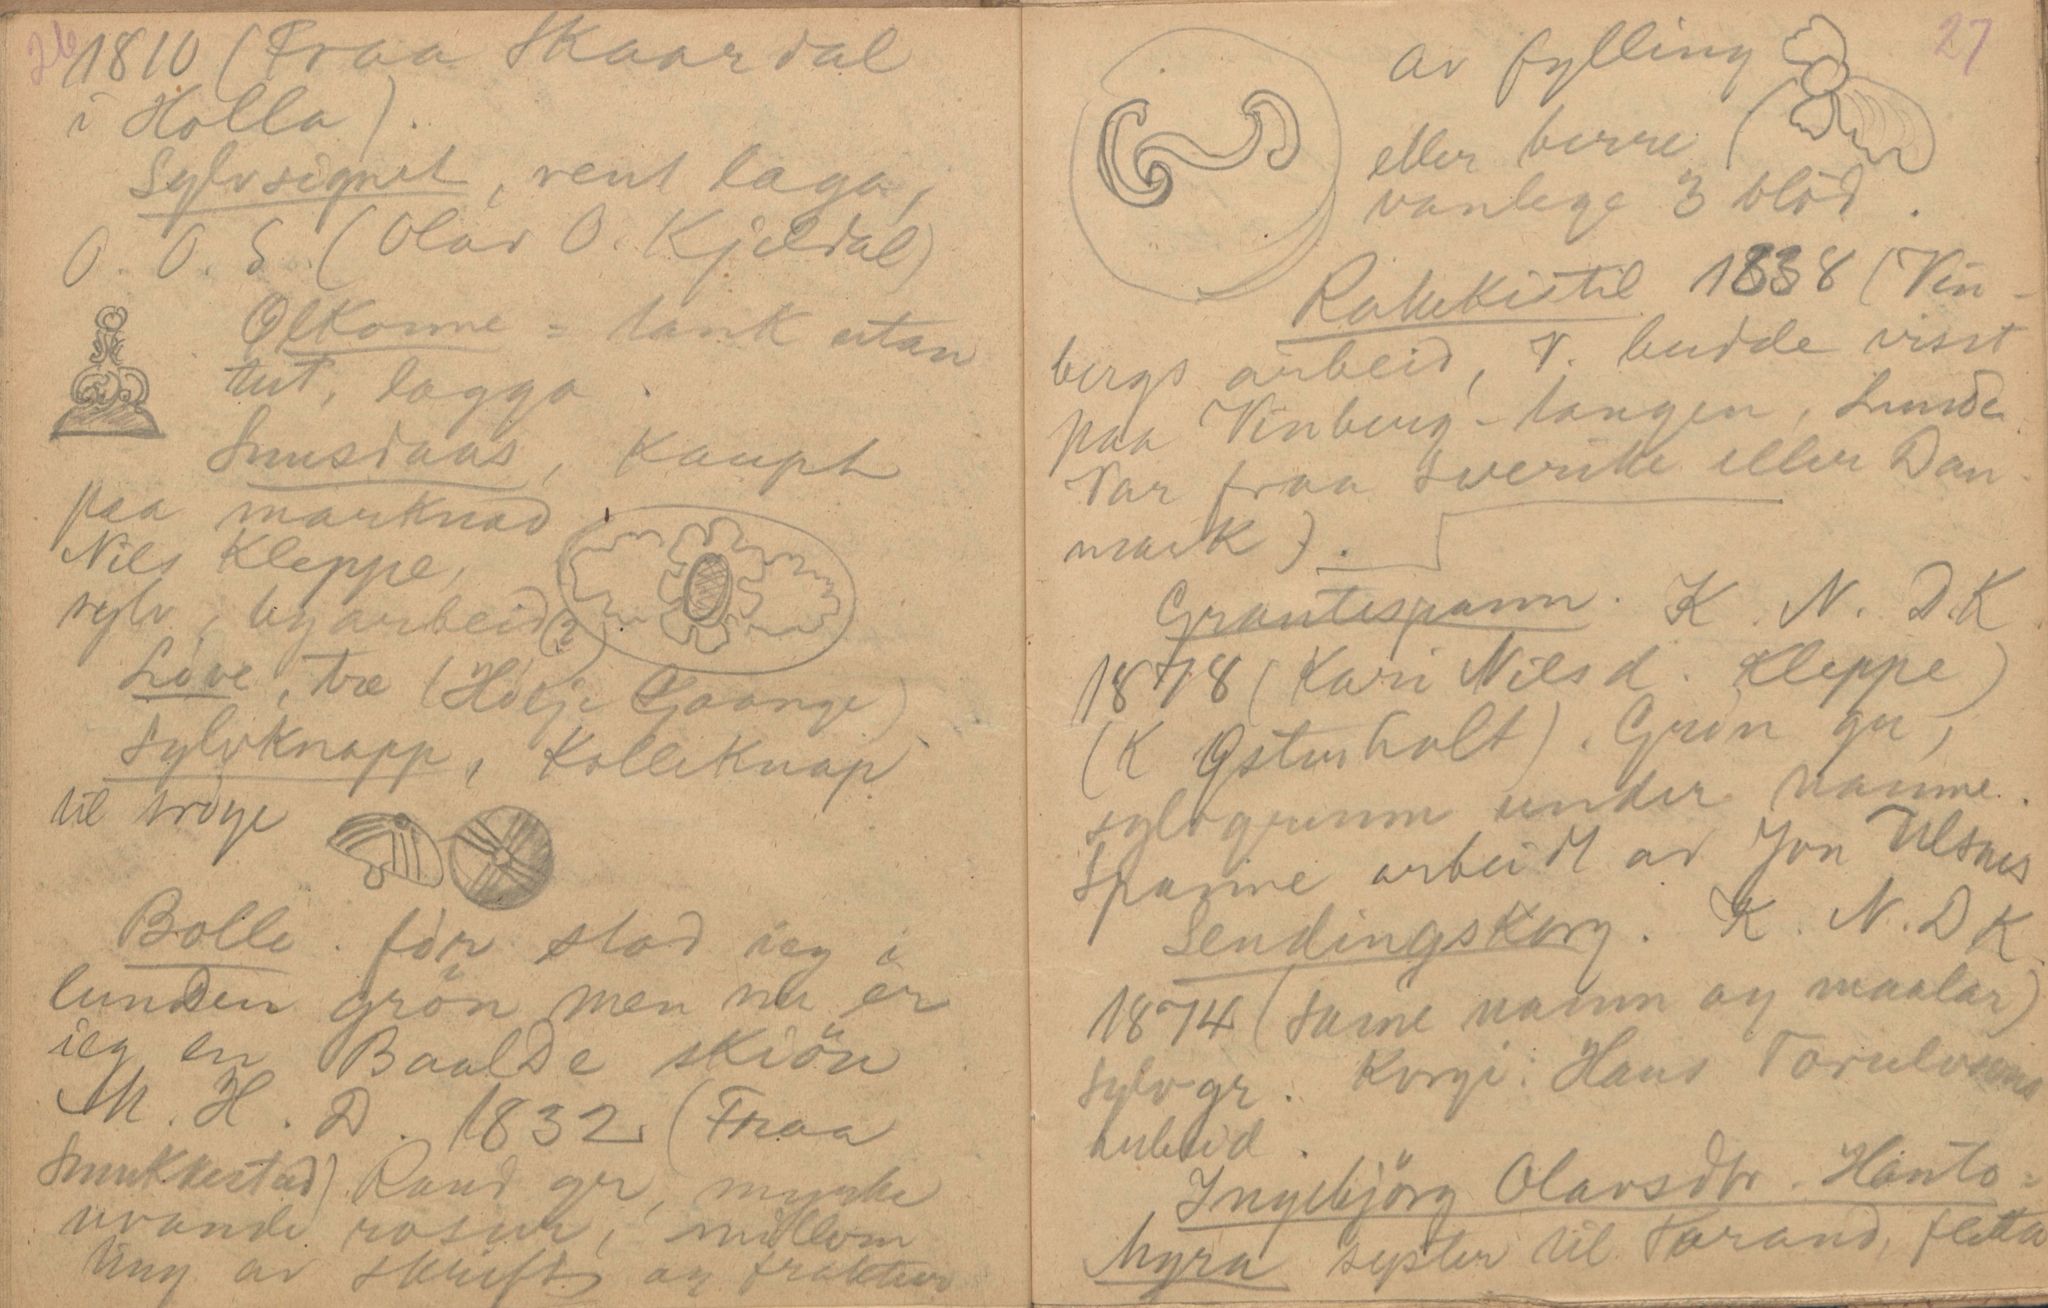 26
1810 (Fraa Skaardal
i Holla).
Sylvsignet, rent laga,
O. O. S. (Olav O. Kjeldal)
Ølkonne = tank utan
tut, lagga.
Snusdaas, kaupt
paa marknad
Nils Kleppe,
sylv, byarbeid?
Løve, tre (Høljе Gaange)
Sylvknapp, Kolleknap
til trøye
Bolle. før stod ieg i
lunden grön men nu er
ieg en Baalde skiön
M. H. D. 1832 (Fraa
Smukkestad) Raud gr,
rosur, millom
ting av skrift og fraktur
27
av fylling
eller berre
vanlege 3 blöd.
Rokkistil 1838 (Vin-
bergs arbeid, V. budde visst
paa Vinberg-tangen, Lunde
Var fraa Sverike eller Dan-
mark).
Grautespann. K. N. D. K
1878 (Kari Nilsd. Kleppe)
(K Østerholt). Grön gr,
sylvgrunn under namne.
Spanne arbeidt av Jon Ulsnes
Sendingskorg. K. N. D K
1874 (same namn og maalar)
Sylvgr. Korgi: Hans Torulvsons
arbeid.
Ingebjörg Olavsdtr. Hanto=
Myra syster til Targand, fletta